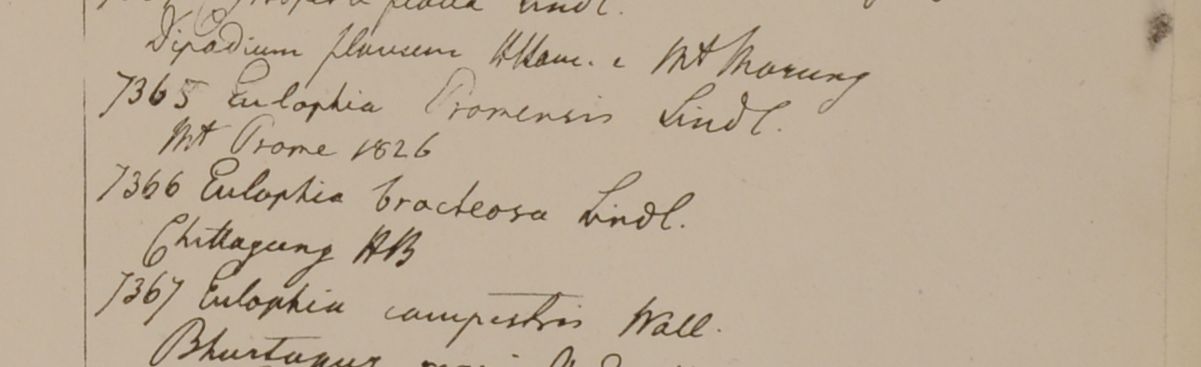 Lindl.
Dipodium flavum H Ham. e Mt Morung
7365 Eulophia Promensis Lindl.
Mt Prome 1826
7366 Eulophia bracteosa Lindl.
Chittagung HB
7367 Eulophia campestris Wall.